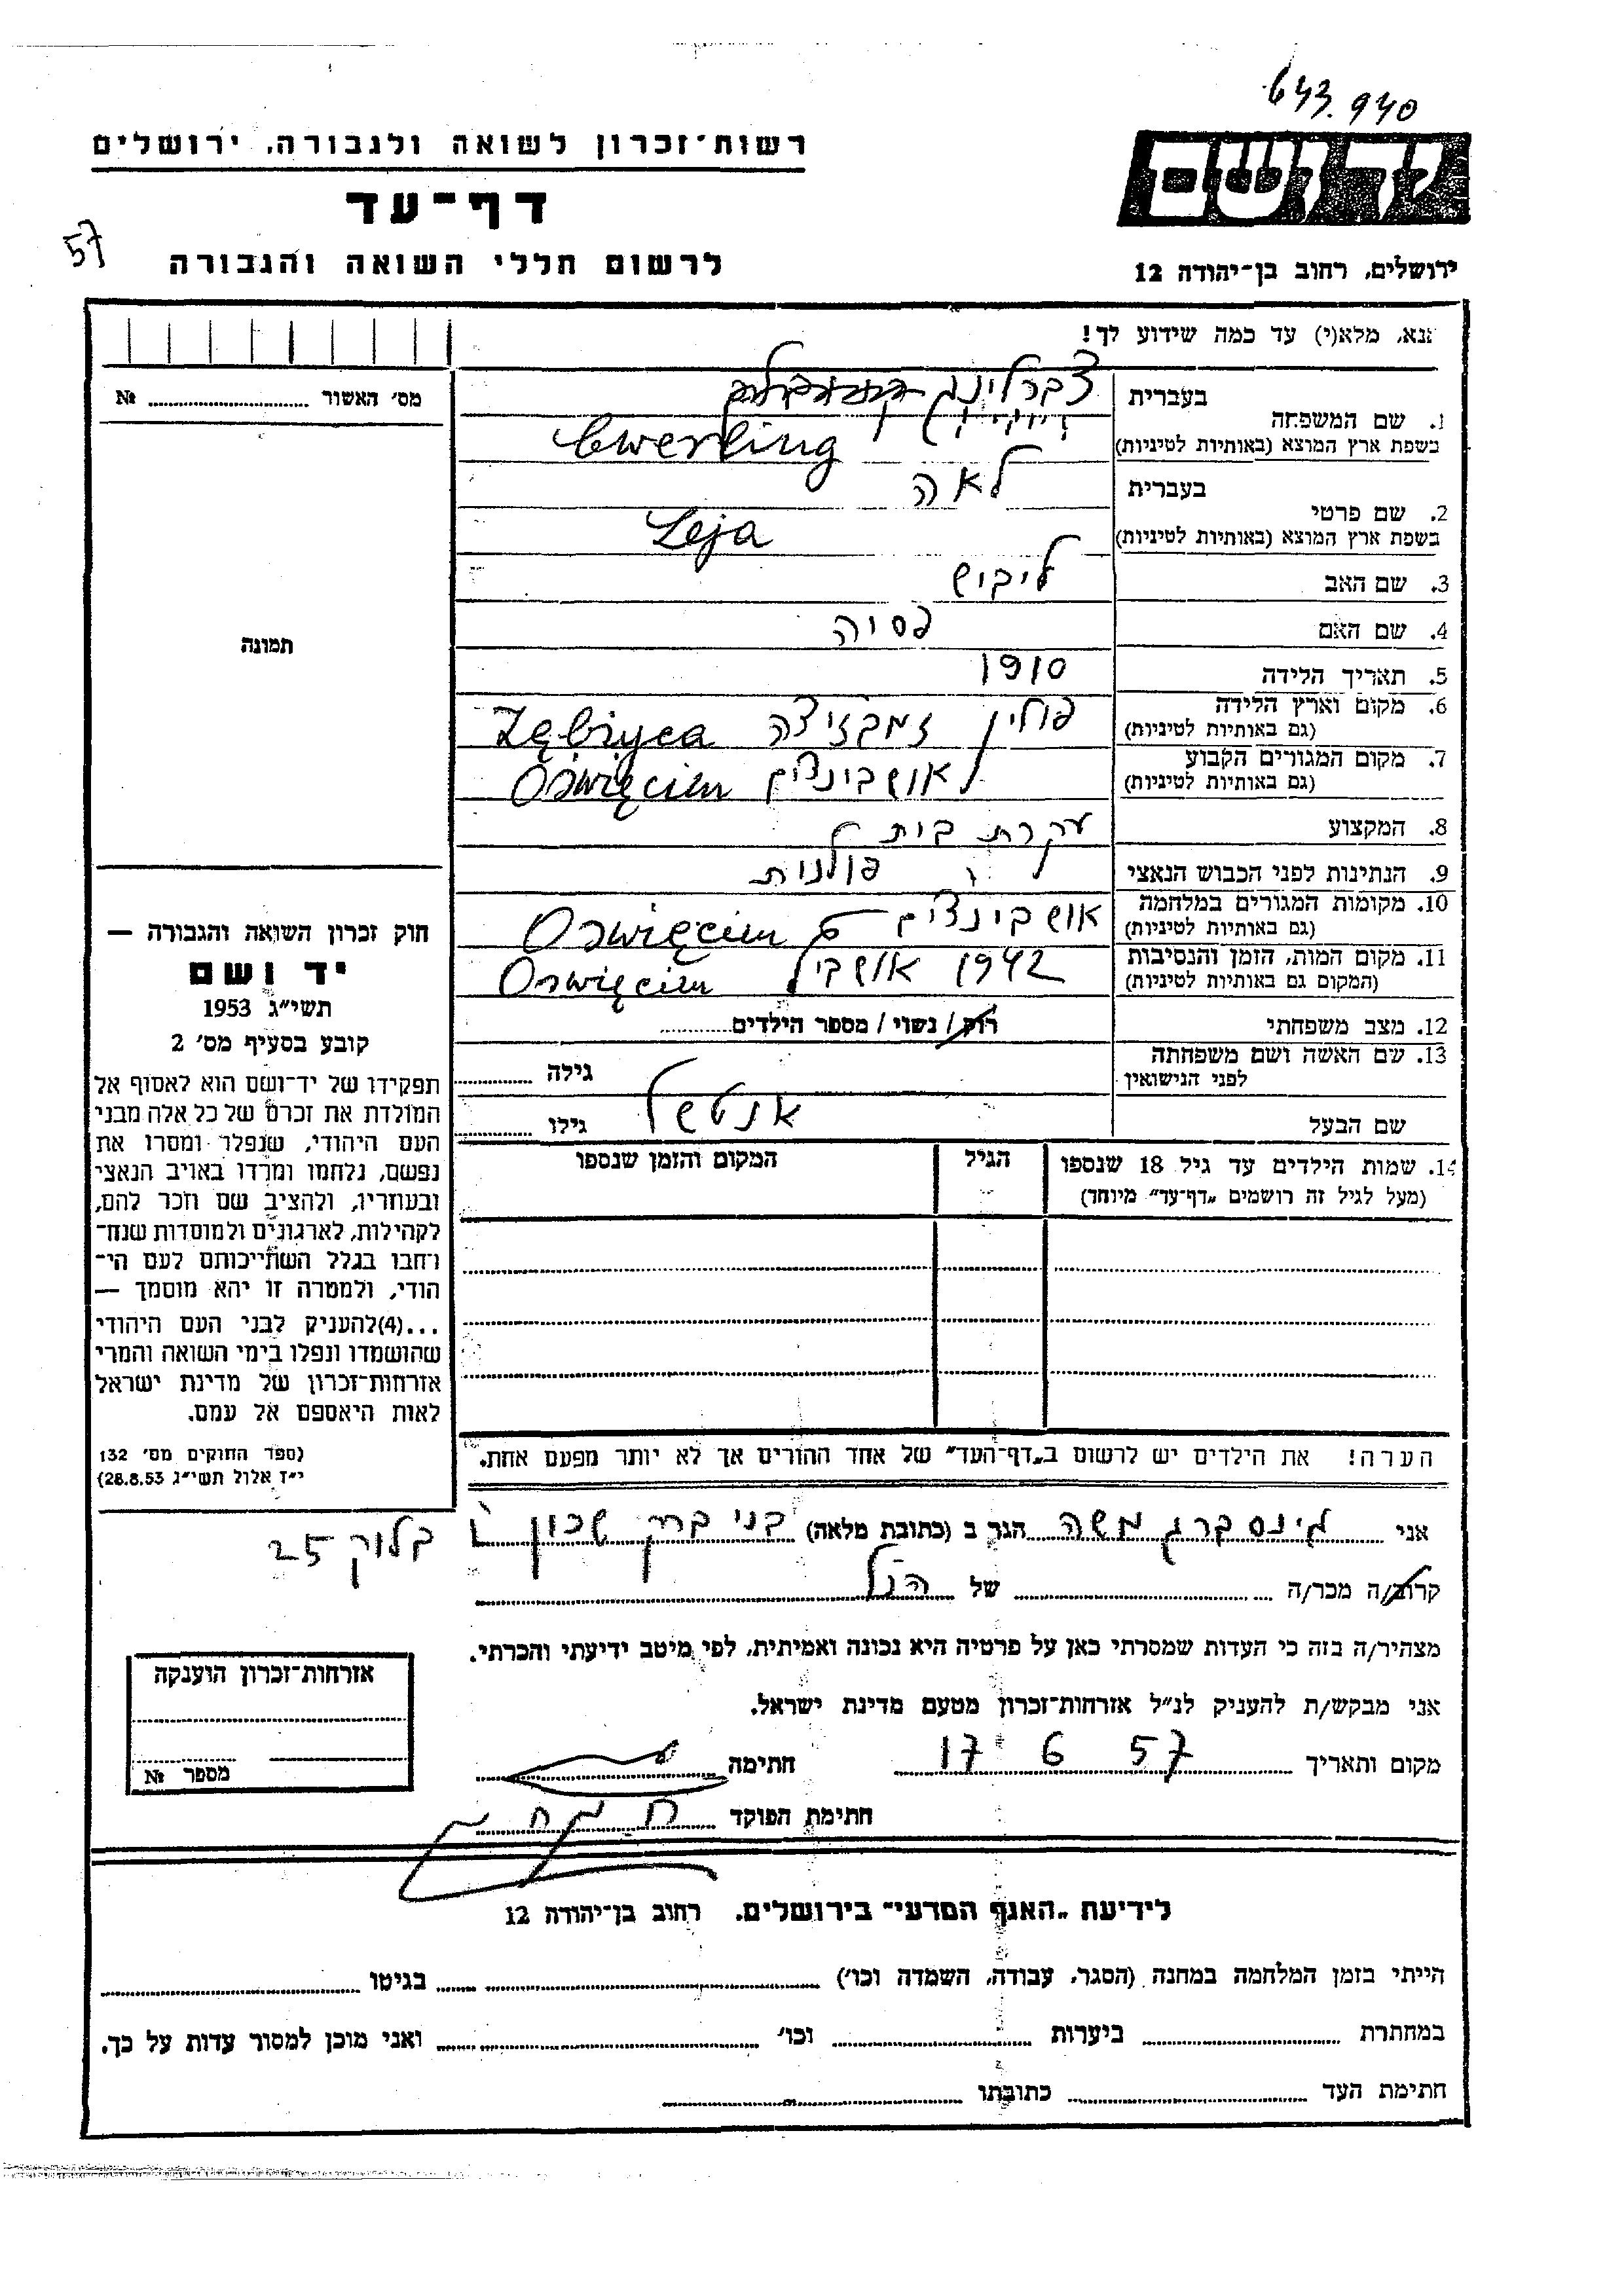 643.940
רשות־זכרון לשואה ולגבורה, ירושלים
יד ושם
דף־עד
57
לרשום חללי השואה והגבורה
ירושלים, רחוב בן־יהודה 12
נא, מלא(י) עד כמה שידוע לך!
מס׳ האשור № 
1. שם המשפחה
בעברית צברלינג
בשפת ארץ המוצא (באותיות לטיניות) Cwerling
2. שם פרטי
בעברית לאה
בשפת ארץ המוצא (באותיות לטיניות) Leja
3. שם האב ליבוש
4. שם האם פסיה
תמונה
5. תאריך הלידה 1910
6. מקום וארץ הלידה פולין זמבזיצה Ząbżyca
(גם באותיות לטיניות)
7. מקום המגורים הקבוע אושבינצים Oświęcim
(גם באותיות לטיניות)
8. המקצוע עקרת בית
9. הנתינות לפני הכבוש הנאצי פולנית
10. מקומות המגורים במלחמה אושבינצים Oświęcim
(גם באותיות לטיניות)
11. מקום המות, הזמן והנסיבות 1942 Oświęcim
(המקום גם באותיות לטיניות)
12. מצב משפחתי רווק / נשוי / מספר הילדים
13. שם האשה ושם משפחתה גילה
לפני הנישואין
שם הבעל אנטשל גילו
14. שמות הילדים עד גיל 18 שנספו הגיל המקום והזמן שנספו
(מעל לגיל זה רושמים „דף־עד״ מיוחד)
חוק זכרון השואה והגבורה —
יד ושם
תשי״ג 1953
קובע בסעיף מס׳ 2
תפקידו של יד־ושם הוא לאסוף אל
המולדת את זכרם של כל אלה מבני
העם היהודי, שנפלו ומסרו את
נפשם, נלחמו ומרדו באויב הנאצי
ובעוזריו, ולהציב שם וזכר להם,
לקהילות, לארגונים ולמוסדות שנח־
רבו בגלל השתייכותם לעם הי־
הודי, ולמטרה זו יהא מוסמך —
...(4)להעניק לבני העם היהודי
שהושמדו ונפלו בימי השואה והמרי
אזרחות־זכרון של מדינת ישראל
לאות היאספם אל עמם.
(ספר החוקים מס׳ 132
י״ז אלול תשי״ג 28.8.53)
הערה! את הילדים יש לרשום ב„דף־העד״ של אחד ההורים אך לא יותר מפעם אחת.
אני גינסברג משה הגר ב (כתובת מלאה) בני ברק שכון ו בלוק 25
קרוב/ה מכר/ה של הנ״ל
מצהיר/ה בזה כי העדות שמסרתי כאן על פרטיה היא נכונה ואמיתית, לפי מיטב ידיעתי והכרתי.
אני מבקש/ת להעניק לנ״ל אזרחות־זכרון מטעם מדינת ישראל.
מקום ותאריך 17 6 57 חתימה
חתימת הפוקד
אזרחות־זכרון הוענקה
מספר №
לידיעת „האגף המדעי״ בירושלים, רחוב בן־יהודה 12
הייתי בזמן המלחמה במחנה (הסגר, עבודה, השמדה וכו׳) בגיטו
במחתרת ביערות וכו׳ ואני מוכן למסור עדות על כך.
חתימת העד כתובתו